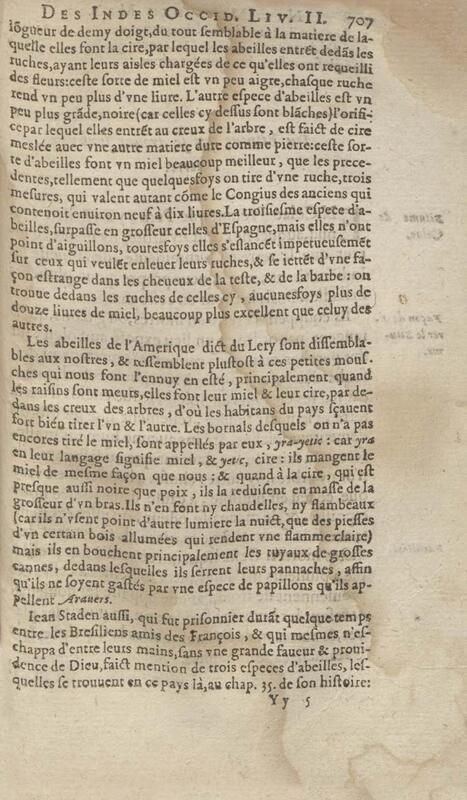 DES INDES OCCID. LIV. II. 707
lõgueur de demy doigt, du tout semblable à la matiere de la-
quelle elles font la cire, par lequel les abeilles entrẽt dedãs les
ruches, ayant leurs aisles chargées de ce qu'elles ont recueilli
des fleurs: ceste sorte de miel est vn peu aigre, chasque ruche
rend vn peu plus d'vne liure. L'autre espece d'abeilles est vn
peu plus grãde, noire (car celles cy dessus sont blãches) l'orifi-
ce par lequel elles entrẽt au creux de l'arbre, est faict de cire
meslée auec vne autre matiere dure comme pierre: ceste sor-
te d'abeilles font vn miel beaucoup meilleur, que les prece-
dentes, tellement que quelquesfoys on tire d'vne ruche, trois
mesures, qui valent autant cõme le Congius des anciens qui
contenoit enuiron neuf à dix liures. La troisiesme espece d'a-
beilles, surpasse en grosseur celles d'Espagne, mais elles n'ont
point d'aiguillons, toutesfoys elles s'eslancẽt impetueusemẽt
sur ceux qui veulẽt enleuer leurs ruches, & se iettẽt d'vne fa-
çon estrange dans les cheueux de la teste, & de la barbe: on
trouue dedans les ruches de celles cy, aucunesfoys plus de
douze liures de miel, beaucoup plus excellent que celuy des
autres.
Les abeilles de l'Amerique dict du Lery sont dissembla-
bles aux nostres, & ressemblent plustost à ces petites mous-
ches qui nous font l'ennuy en esté, principalement quand
les raisins sont meurs, elles font leur miel & leur cire, par de-
dans les creux des arbres, d'où les habitans du pays sçauent
fort bien titer l'vn & l'autre. Les bornals desquels on n'a pas
encores tiré le miel, sont appellés par eux, yra-yetic: car yra
en leur langage signifie miel, & yetic, cire: ils mangent le
miel de mesme façon que nous: & quand à la cire, qui est
presque aussi noire que poix, ils la reduisent en masse de la
grosseur d'vn bras. Ils n'en font ny chandelles, ny flambeaux
(car ils n'vsent point d'autre lumiere la nuict, que des piesses
d'vn certain bois allumées qui rendent vne flamme claire)
mais ils en bouchent principalement les tuyaux de grosses
cannes, dedans lesquelles ils serrent leurs pannaches, affin
qu'ils ne soyent gastés par vne espece de papillons qu'ils ap-
pellent Arauers.
Iean Staden aussi, qui fut prisonnier durãt quelque temps
entre les Bresiliens amis des François, & qui mesmes n'es-
chappa d'entre leurs mains, sans vne grande faueur & proui-
dence de Dieu, faict mention de trois especes d'abeilles, les-
quelles se trouuent en ce pays là, au chap. 35. de son histoire:
Yy 5